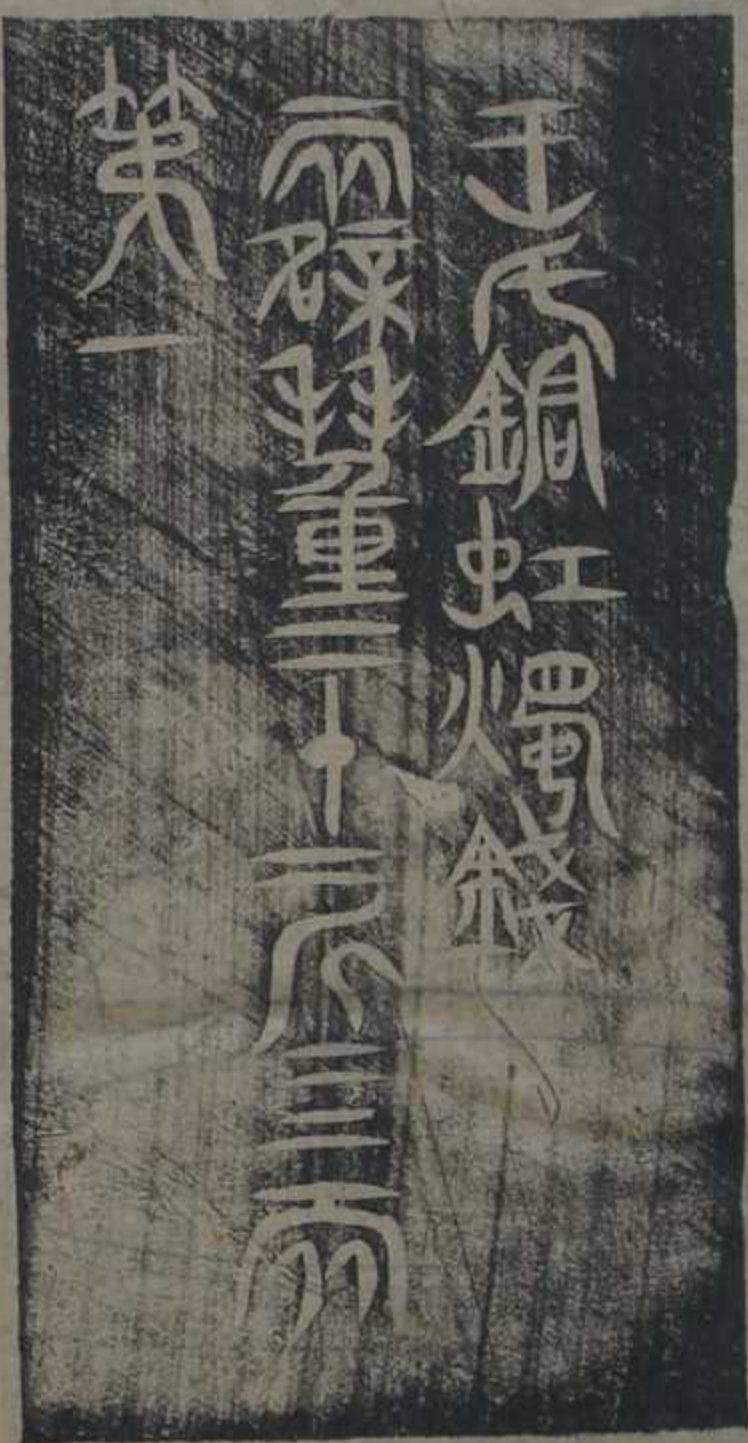 王氏銅虹燭錢
兩辟并重二十一斤四兩
第一